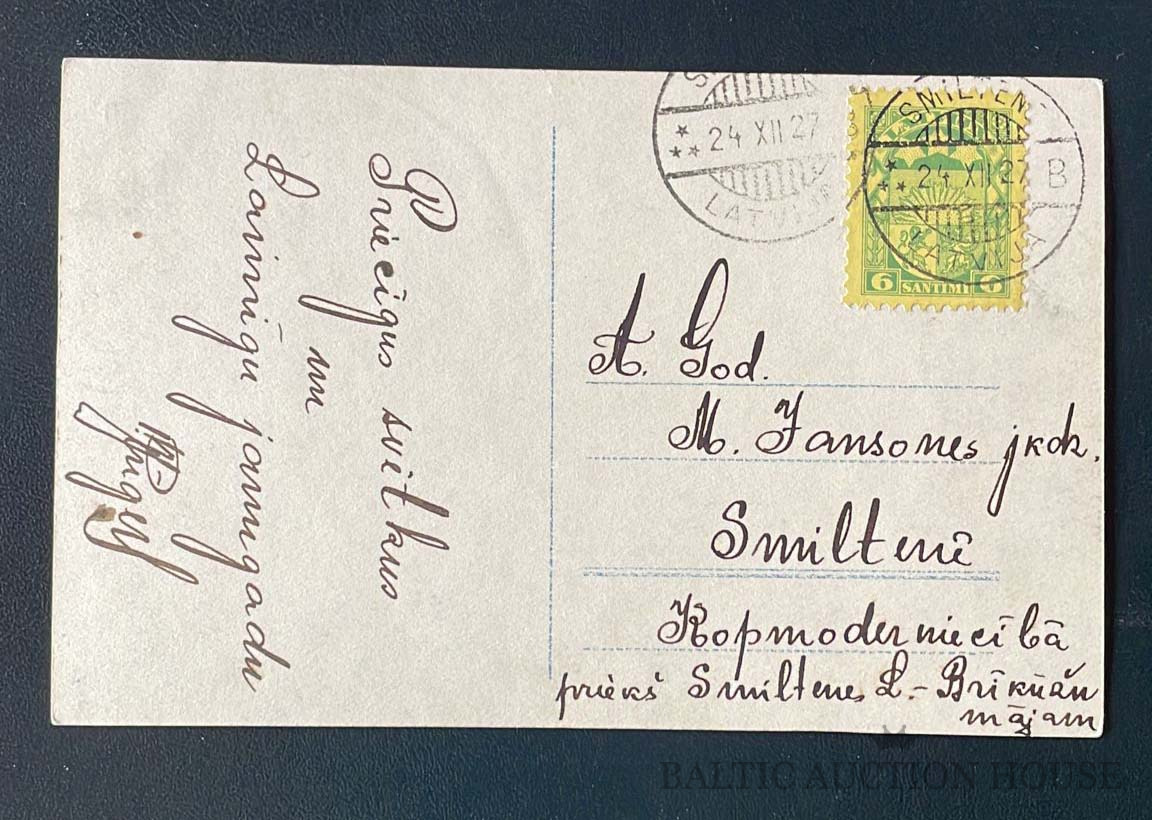 Priecīgus svētkus
un
Laimīgu jaungadu
24 XII 27
LATVIJA
SMILTENE
24 XII 27 B
LATVIJA
6 SANTIMI 6
A. God.
M. Jansones jkdz.
Smiltenē
Kopmoderniecībā
priekš Smiltenes L.- Brīkuāņ
mājam
BALTIC AUCTION HOUSE